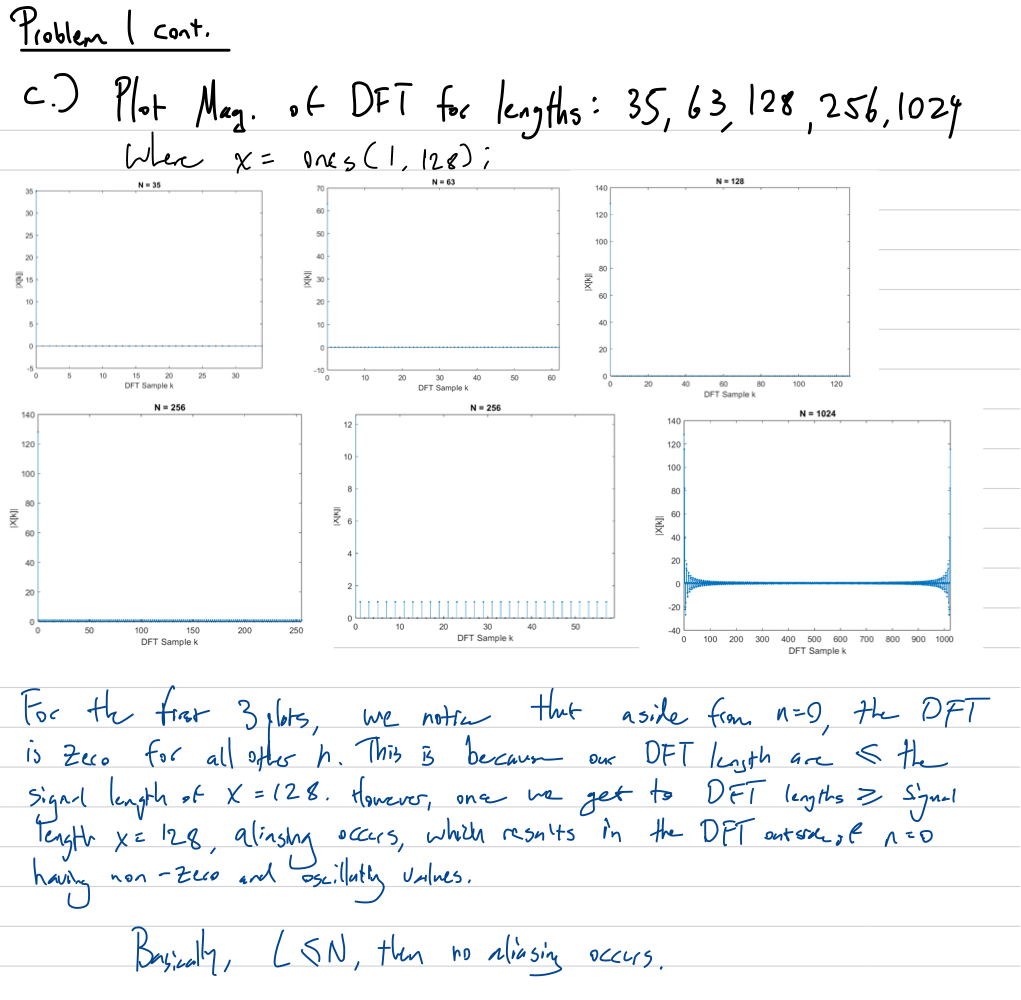 Problem 1 cont.
c.) Plot Mag. of DFT for lengths: 35, 63, 128, 256, 1024
Where x = ones(1, 128);
N = 35
35
30
25
20
15
10
5
0
-5
|X[k]|
0 5 10 15 20 25 30
DFT Sample k
N = 63
70
60
50
40
30
20
10
0
-10
|X[k]|
0 10 20 30 40 50 60
DFT Sample k
N = 128
140
120
100
80
60
40
20
0
|X[k]|
0 20 40 60 80 100 120
DFT Sample k
N = 256
140
120
100
80
60
40
20
0
|X[k]|
0 50 100 150 200 250
DFT Sample k
N = 256
12
10
8
6
4
2
0
|X[k]|
0 10 20 30 40 50
DFT Sample k
N = 1024
140
120
100
80
60
40
20
0
-20
-40
|X[k]|
0 100 200 300 400 500 600 700 800 900 1000
DFT Sample k
For the first 3 plots, we notice that aside from n=0, the DFT
is zero for all other n. This is because our DFT length are ≤ the
signal length of x = 128. However, once we get to DFT lengths ≥ signal
length x = 128, aliasing occurs, which results in the DFT outside of n=0
having non-zero and oscillatly values.
Basically, L ≤ N, then no aliasing occurs.